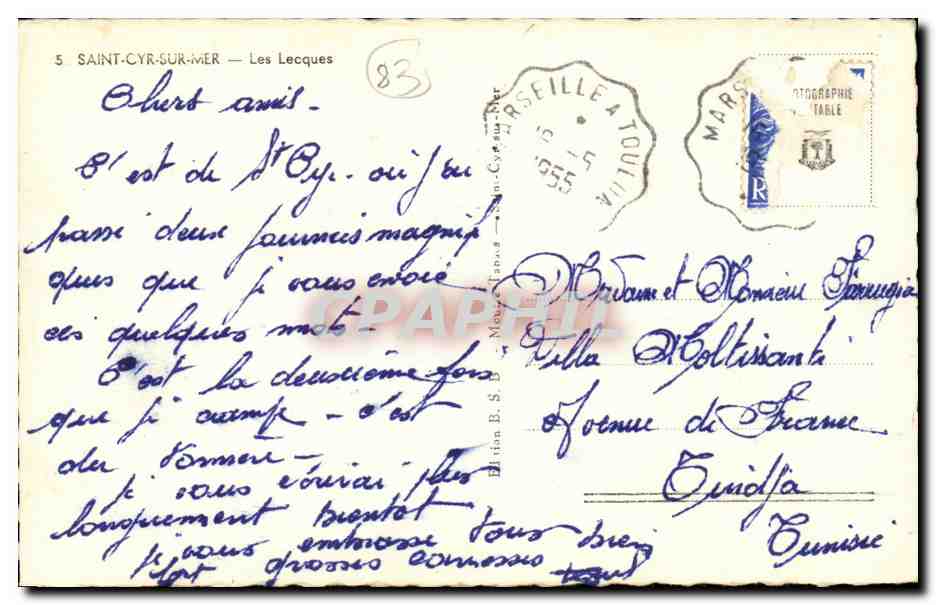 5 SAINT-CYR-SUR-MER — Les Lecques
83
MARSEILLE A TOULON
5
1955
MARS
OTOGRAPHIE
TABLE
R
Chers amis -
C'est de St Cyr - où j'ai
passé deux journées magnifi
ques que je vous envoie
ces quelques mots -
C'est la deuxième fois
que je campe - c'est
du
je vous écrirai plus
longuement bientôt
je vous embrasse tous bien
fort grosses caresses
Edition B. S. D. Tabacs Saint-Cyr-sur-Mer
Madame et Monsieur Farrugia
Villa Moltissanti
Avenue de France
Tindja
Tunisie
CPAPHIL